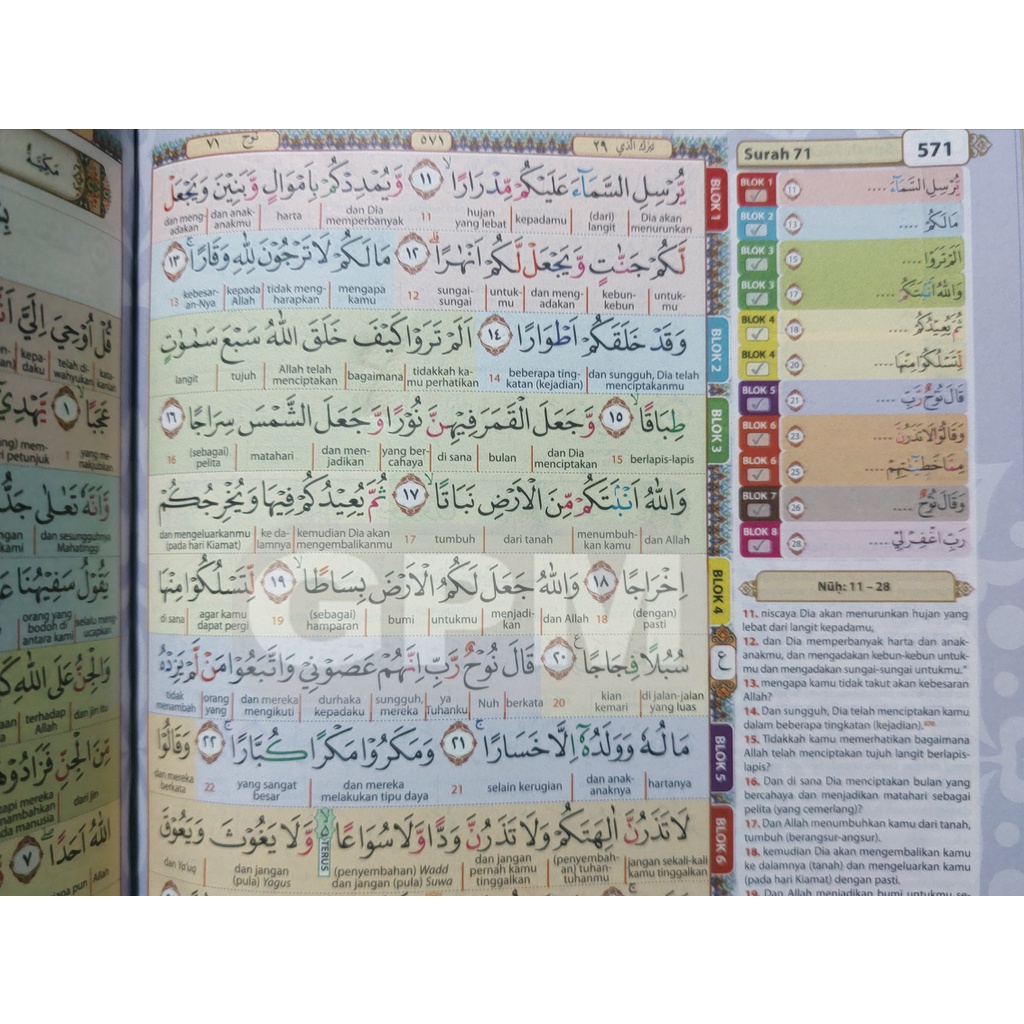 نوح ٧١
٥٧١
تبرك الذي ٢٩
يُّرْسِلِ السَّمَاۤءَ عَلَيْكُمْ مِّدْرَارًاۙ ١١ وَّيُمْدِدْكُمْ بِاَمْوَالٍ وَّبَنِيْنَ وَيَجْعَلْ
Dia akan menurunkan | (dari) langit | kepadamu | hujan yang lebat | 11 | dan Dia memperbanyak | harta | dan anak-anakmu | dan meng-adakan
لَّكُمْ جَنّٰتٍ وَّيَجْعَلْ لَّكُمْ اَنْهٰرًاۗ ١٢ مَا لَكُمْ لَا تَرْجُوْنَ لِلّٰهِ وَقَارًاۚ ١٣
untuk-mu | kebun-kebun | dan meng-adakan | untuk-mu | sungai-sungai | 12 | mengapa kamu | tidak meng-harapkan | kepada Allah | kebesar-an-Nya | 13
وَقَدْ خَلَقَكُمْ اَطْوَارًا ١٤ اَلَمْ تَرَوْا كَيْفَ خَلَقَ اللّٰهُ سَبْعَ سَمٰوٰتٍ
dan sungguh, Dia telah menciptakanmu | beberapa ting-katan (kejadian) | 14 | tidakkah ka-mu perhatikan | bagaimana | Allah telah menciptakan | tujuh | langit
طِبَاقًاۙ ١٥ وَّجَعَلَ الْقَمَرَ فِيْهِنَّ نُوْرًا وَّجَعَلَ الشَّمْسَ سِرَاجًا ١٦
berlapis-lapis | 15 | dan Dia menciptakan | bulan | di sana | yang ber-cahaya | dan men-jadikan | matahari | (sebagai) pelita | 16
وَاللّٰهُ اَنْۢبَتَكُمْ مِّنَ الْاَرْضِ نَبَاتًاۙ ١٧ ثُمَّ يُعِيْدُكُمْ فِيْهَا وَيُخْرِجُكُمْ
dan Allah | menumbuh-kan kamu | dari tanah | tumbuh | 17 | kemudian Dia akan mengembalikanmu | ke da-lamnya | dan mengeluarkanmu (pada hari Kiamat)
اِخْرَاجًا ١٨ وَاللّٰهُ جَعَلَ لَكُمُ الْاَرْضَ بِسَاطًاۙ ١٩ لِّتَسْلُكُوْا مِنْهَا
(dengan) pasti | 18 | dan Allah | menjadi-kan | untukmu | bumi | (sebagai) hamparan | 19 | agar kamu dapat pergi | di sana
سُبُلًا فِجَاجًا ࣖ ٢٠ قَالَ نُوْحٌ رَّبِّ اِنَّهُمْ عَصَوْنِيْ وَاتَّبَعُوْا مَنْ لَّمْ يَزِدْهُ
di jalan-jalan yang luas | kian kemari | 20 | berkata | Nuh | ya Tuhanku | sungguh, mereka | durhaka kepadaku | dan mereka mengikuti | orang yang | tidak menambah
مَالُهٗ وَوَلَدُهٗٓ اِلَّا خَسَارًاۚ ٢١ وَمَكَرُوْا مَكْرًا كُبَّارًاۚ ٢٢ وَقَالُوْا
hartanya | dan anak-anaknya | selain kerugian | 21 | dan mereka melakukan tipu daya | yang sangat besar | 22 | dan mereka berkata
لَا تَذَرُنَّ اٰلِهَتَكُمْ وَلَا تَذَرُنَّ وَدًّا وَّلَا سُوَاعًا ەۙ وَّلَا يَغُوْثَ وَيَعُوْقَ
TERUS
jangan sekali-kali kamu tinggalkan | (penyembah-an) tuhan-tuhanmu | dan jangan pernah kamu tinggalkan | (penyembahan) Wadd | dan jangan (pula) Suwa | dan jangan (pula) Yagus | dan Ya'uq
BLOK 1
BLOK 2
BLOK 3
BLOK 4
ع
BLOK 5
BLOK 6
GPM
Surah 71
571
BLOK 1 11 يُّرْسِلِ السَّمَاۤءَ ....
BLOK 2 13 مَا لَكُمْ ....
BLOK 3 15 اَلَمْ تَرَوْا ....
BLOK 3 17 وَاللّٰهُ اَنْۢبَتَكُمْ ....
BLOK 4 18 ثُمَّ يُعِيْدُكُمْ ....
BLOK 4 20 لِّتَسْلُكُوْا مِنْهَا ....
BLOK 5 21 قَالَ نُوْحٌ رَّبِّ ....
BLOK 6 23 وَقَالُوْا لَا تَذَرُنَّ ....
BLOK 6 25 مِمَّا خَطِيْۤـٰٔتِهِمْ ....
BLOK 7 26 وَقَالَ نُوْحٌ ....
BLOK 8 28 رَبِّ اغْفِرْ لِيْ ....
Nūḥ: 11 – 28
11. niscaya Dia akan menurunkan hujan yang
lebat dari langit kepadamu,
12. dan Dia memperbanyak harta dan anak-
anakmu, dan mengadakan kebun-kebun untuk-
mu dan mengadakan sungai-sungai untukmu."
13. mengapa kamu tidak takut akan kebesaran
Allah?
14. Dan sungguh, Dia telah menciptakan kamu
dalam beberapa tingkatan (kejadian).
15. Tidakkah kamu memerhatikan bagaimana
Allah telah menciptakan tujuh langit berlapis-
lapis?
16. Dan di sana Dia menciptakan bulan yang
bercahaya dan menjadikan matahari sebagai
pelita (yang cemerlang)?
17. Dan Allah menumbuhkan kamu dari tanah,
tumbuh (berangsur-angsur).
18. kemudian Dia akan mengembalikan kamu
ke dalamnya (tanah) dan mengeluarkan kamu
(pada hari Kiamat) dengan pasti.
19. Dan Allah menjadikan bumi untukmu se-